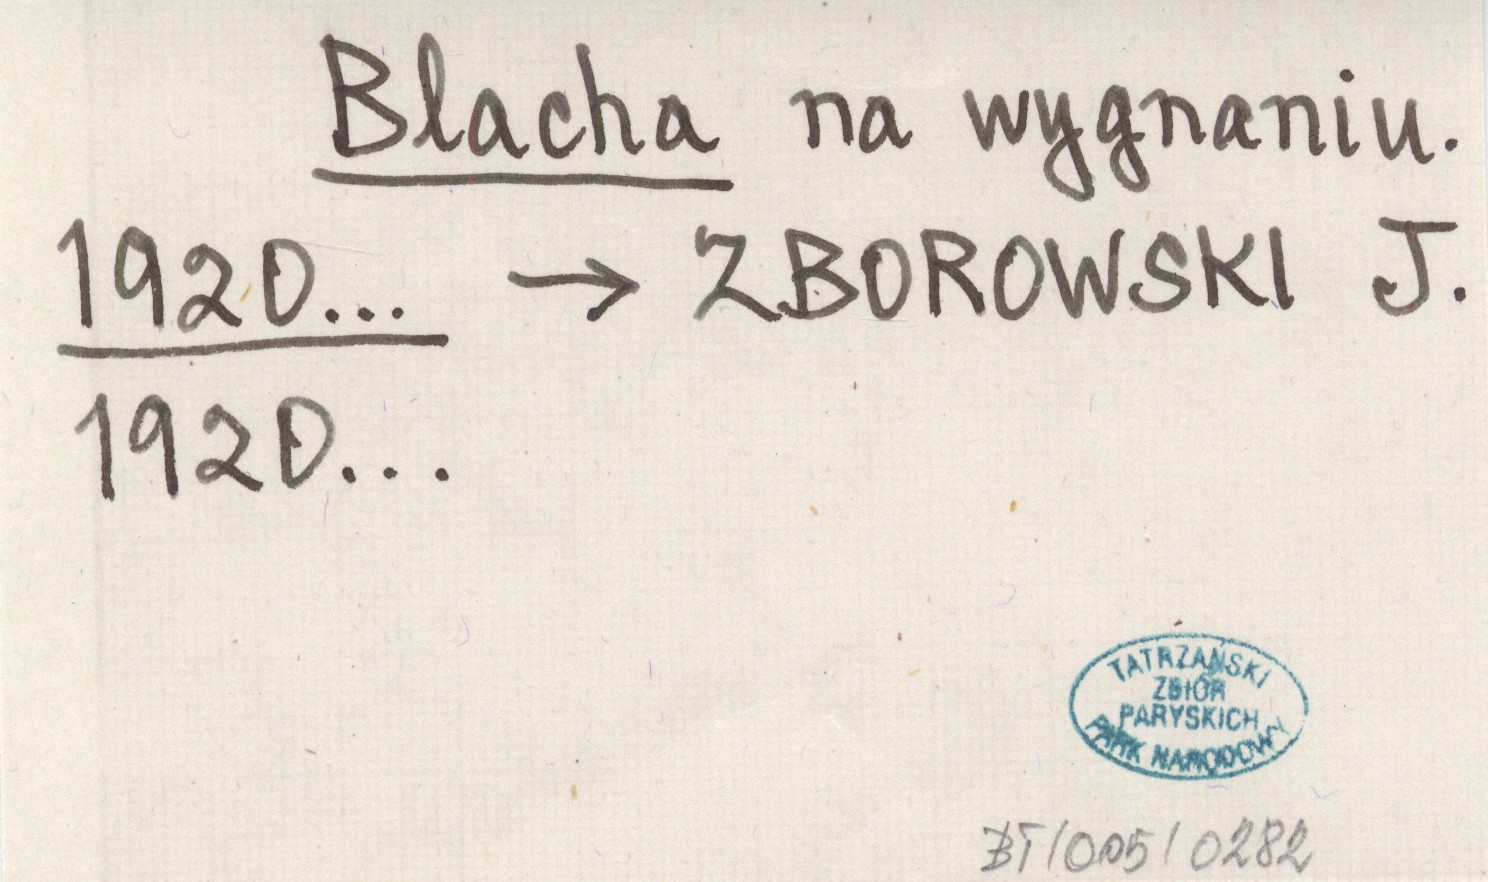 Blacha na wygnaniu.
1920... → ZBOROWSKI J.
1920...
TATRZAŃSKI
ZBIÓR
PARYSKICH
PARK NARODOWY
BT/005/0282